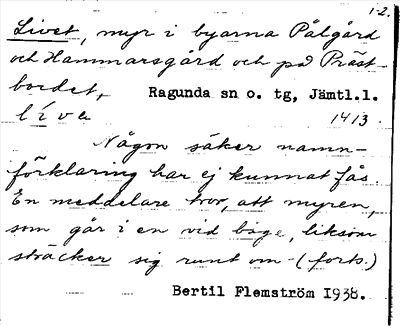 1-2.
Livet, myr i byarna Pålgård
och Hammarsgård och på Präst-
bordet,
Ragunda sn o. tg, Jämtl.l.
líva
1413.
Någon säker namn-
förklaring har ej kunnat fås.
En meddelare tror, att myren,
som går i en vid båge, liksom
sträcker sig runt om - (forts.)
Bertil Flemström 1938.